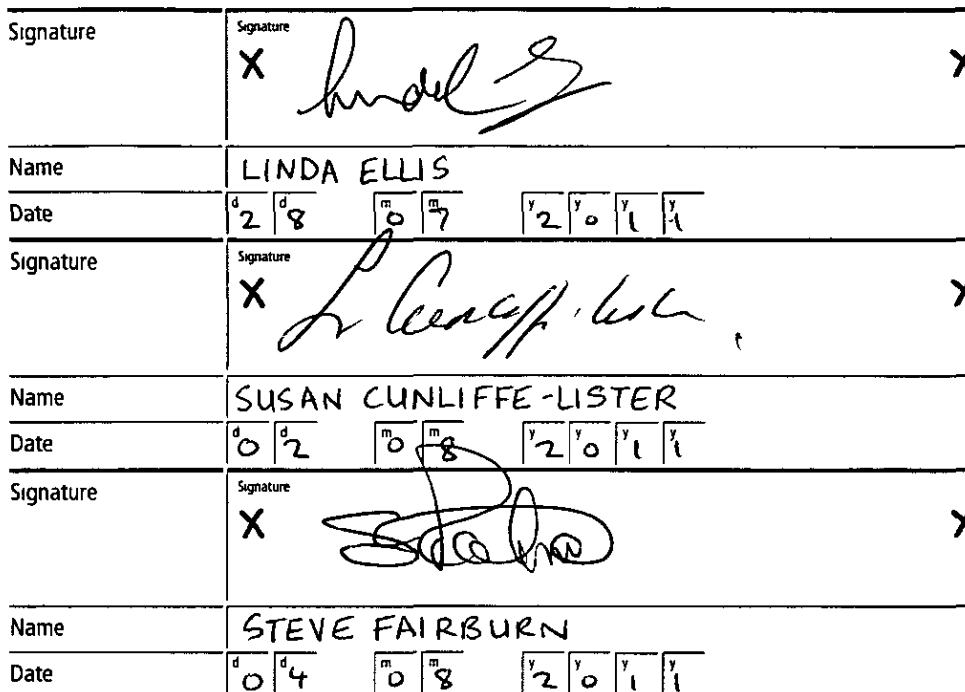 Signature Signature
X X
Name LINDA ELLIS
Date d2 d8 m0 m7 y2 y0 y1 y1
Signature Signature
X X
Name SUSAN CUNLIFFE-LISTER
Date d0 d2 m0 m8 y2 y0 y1 y1
Signature Signature
X X
Name STEVE FAIRBURN
Date d0 d4 m0 m8 y2 y0 y1 y1